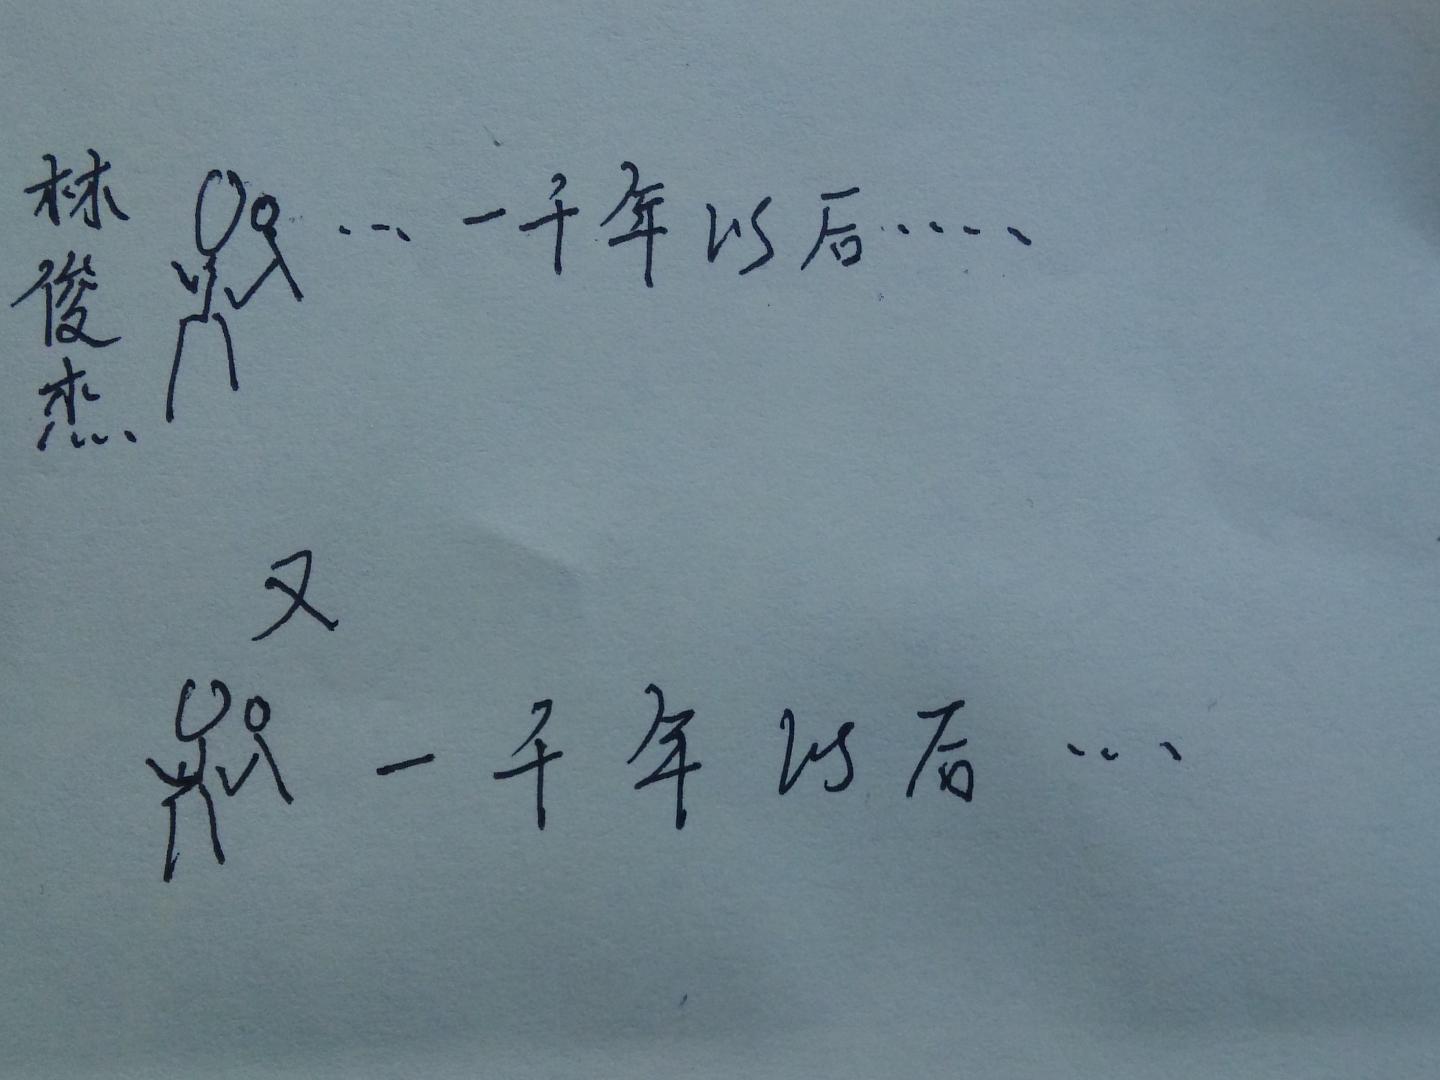 林俊杰
… 一千年以后……
又
一千年以后…